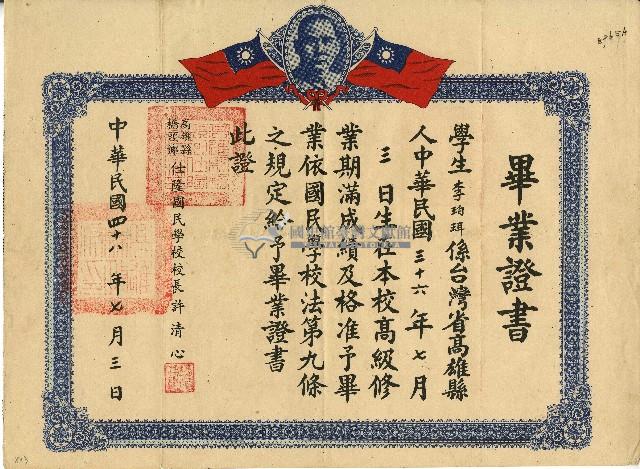 畢業證書
學生李珣珥係台灣省高雄縣
人中華民國三十六年七月
三日生在本校高級修
業期滿成績及格准予畢
業依國民學校法第九條
之規定給予畢業證書
此證
高雄縣
橋頭鄉
仕隆國民學校校長許清心
中華民國四十八年七月三日